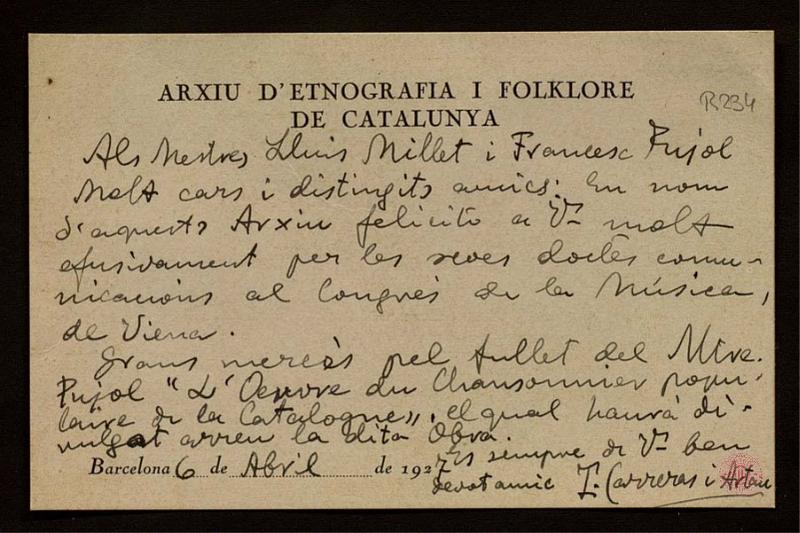 ARXIU D'ETNOGRAFIA I FOLKLORE
DE CATALUNYA
R234
Als Mestres Lluis Millet i Francesc Pujol
Molt cars i distingits amics: En nom
d'aquests Arxiu felicito a Vs molt
efusivament per les seves doctes comu-
nicacions al Congrés de la Música,
de Viena.
Grans mercès pel fullet del Mtre.
Pujol "L'Oeuvre du Chansonnier popu-
laire de la Catalogne", el qual haurà di-
vulgat arreu la dita Obra.
Es sempre de Vs ben
Barcelona 6 de Abril de 1927
devot amic T. Carreras i Artau